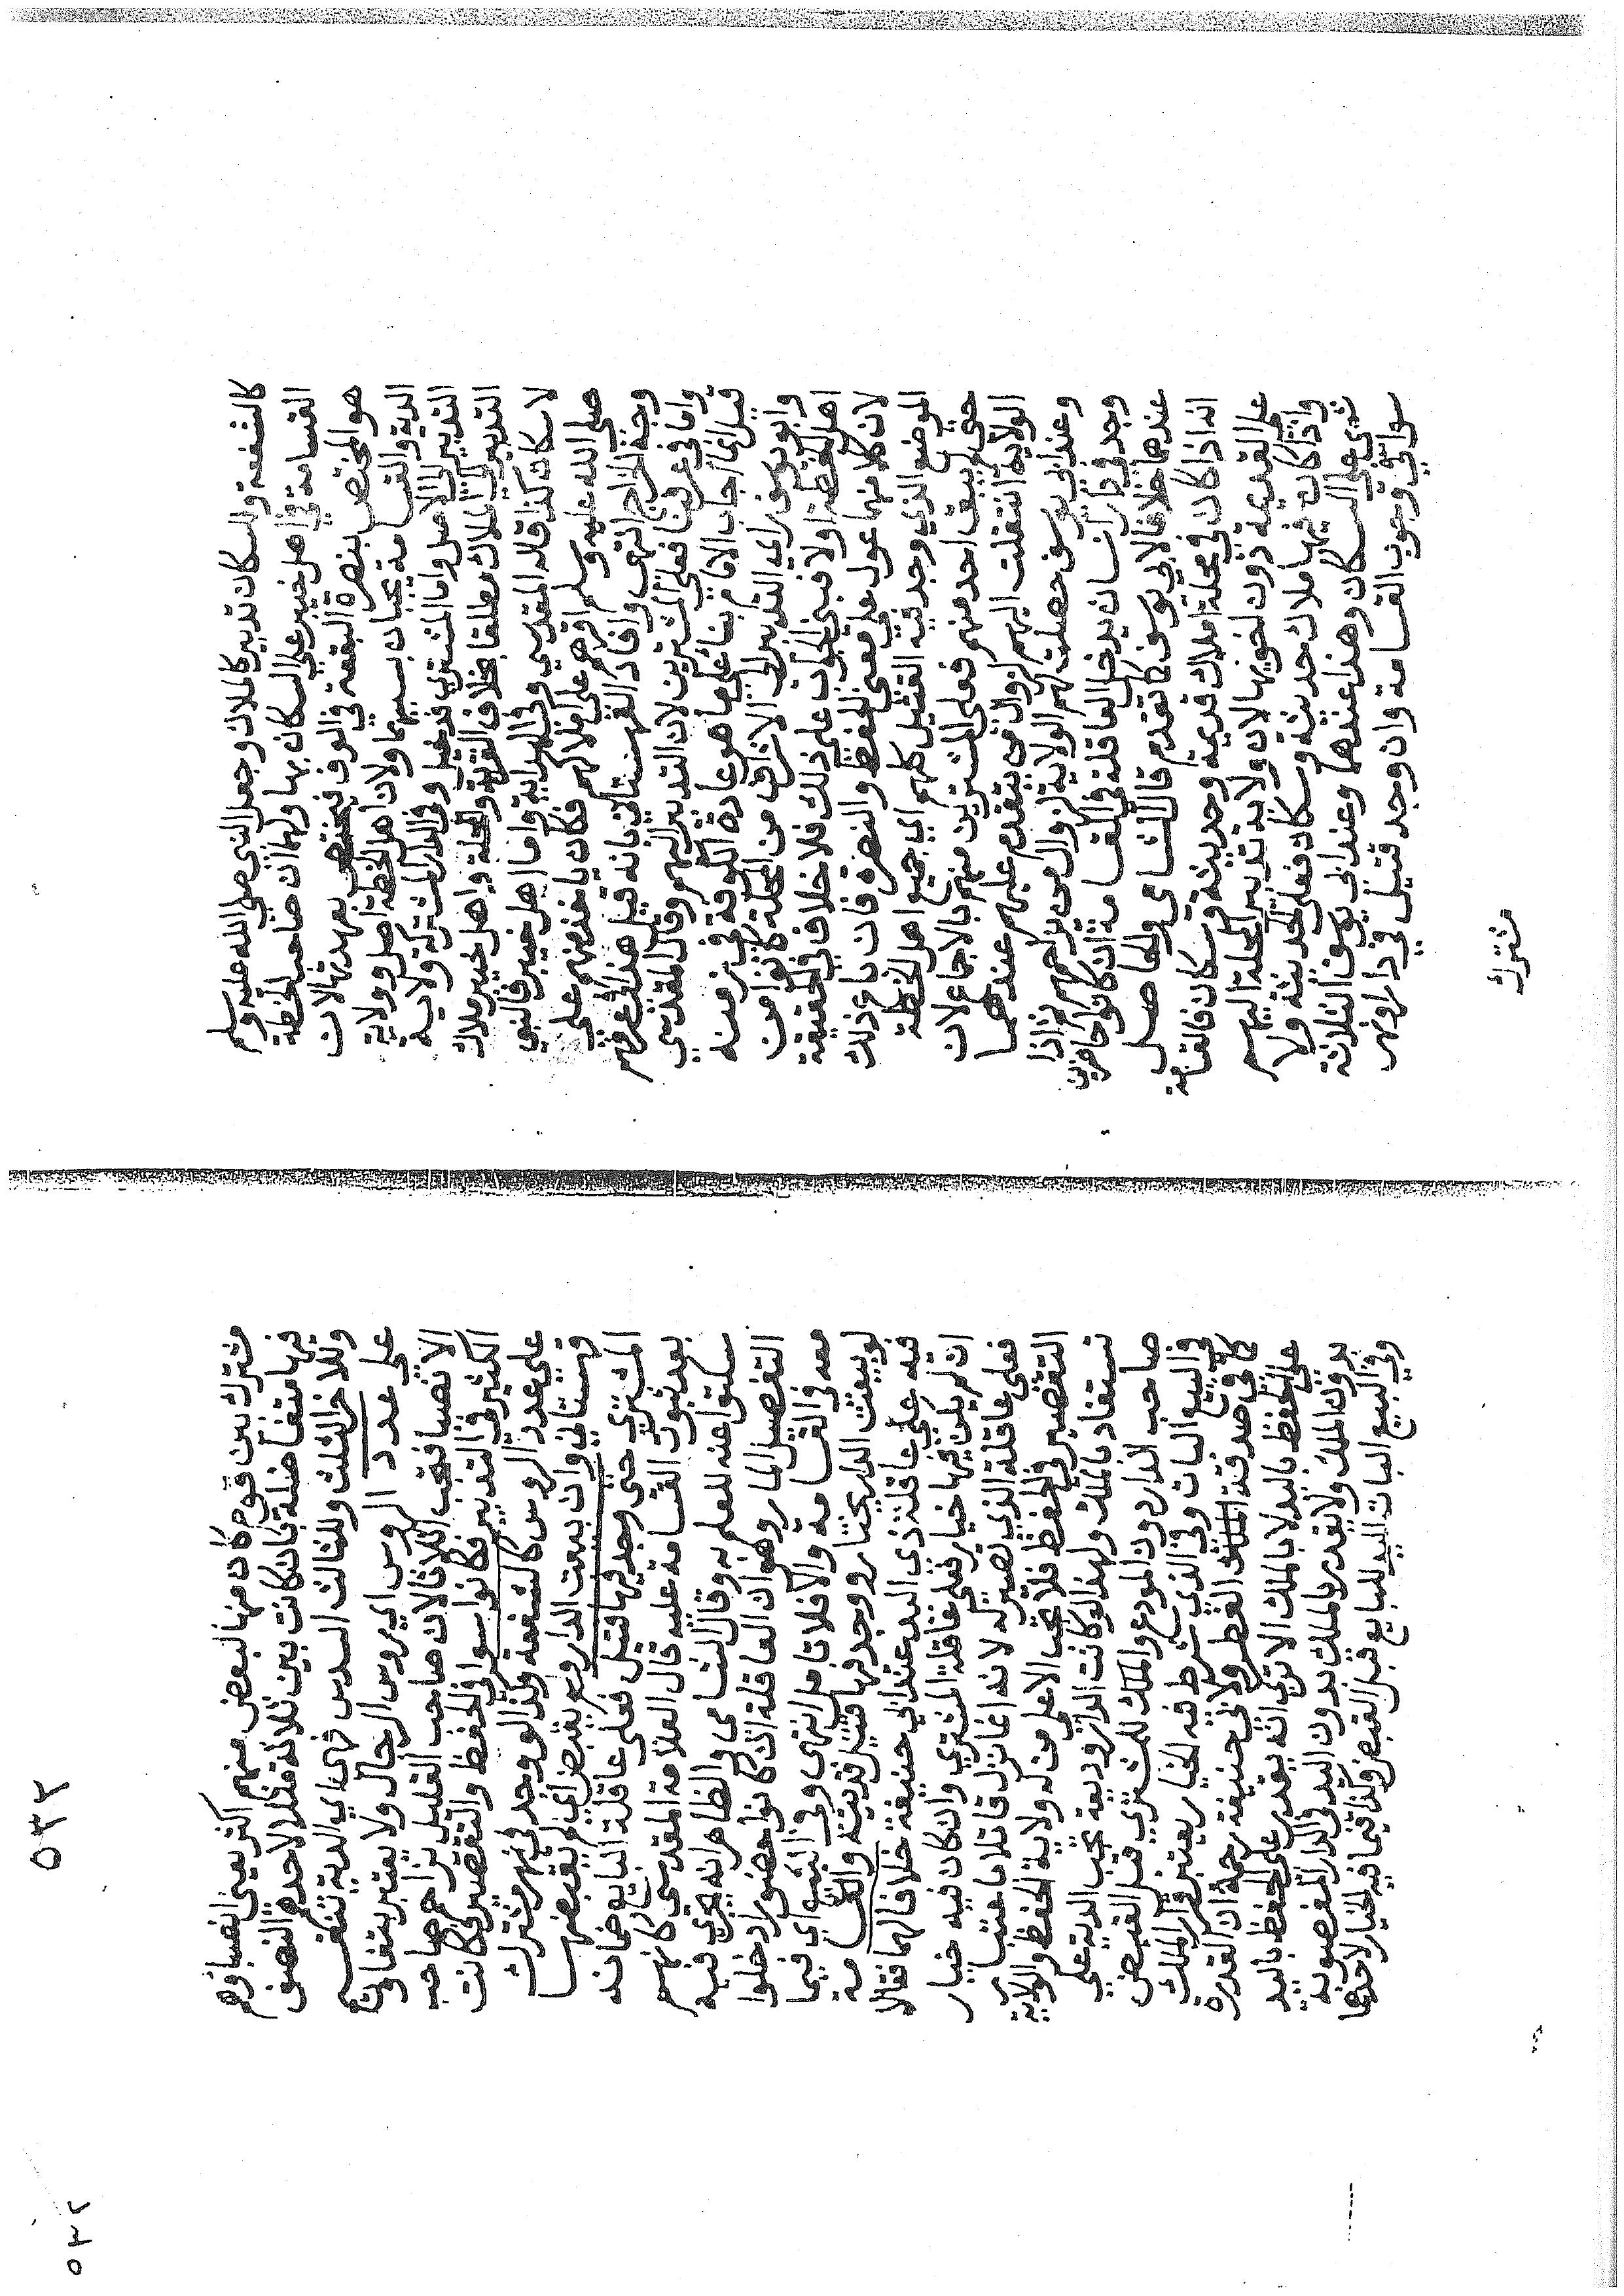 كالشفعة والسكان تدبير كالملاك وجعل النبي صلى الله عليه وسلم
القسامة في اهل خيبر علي السكان بها ولهما ان صاحب الخطة
هو المختص بنصرة البقعة في العرف فيختص بعهدتها لان
الدية والقسامة يجبان بسببهما ولان اهل الخطة اصل وولاية
التدبير الي الاصل واما المشتري فدخيل وفي الدار المشتركة ولاية
التدبير الي الملاك مطلقا بخلاف القرية والمحلة واهل خيبر ملاك
لا سكان كذا قاله المقدسي وفي الهداية واما اهل خيبر فالنبي
صلى الله عليه وسلم اقرهم على املاكهم فكان ياخذ منهم علي
وجه الخراج انتهى وافاد القهستاني بانه قيل هذا في عرفهم
واما في عرفنا فعلي المشترين لان التدبير اليهم وقال المقدسي
قيل انما اجاب الامام بناء علي ما هو عادة الكوفة في زمنه
وابو يوسف راي التدبير الي الاشراف من المحلة كانوا من
اهل الخطة اولا فبني الجواب علي ذلك فلا خلاف في الحقيقة
لان كلا منهما عول على معني الحفظ والنصرة فان باع ذلك
الموضع الذي وجد فيه القتيل كلهم اي جميع اهل الخطة
حتى لم يبق احد منهم فعلى المشترين منهم بالاجماع لان
الولاية انتقلت اليهم لزوال من يتقدم عليهم عندهما
وعند ابي يوسف خلصت لهم الولاية لزوال من يزاحمهم واذا
وجد في دار انسان يدخل العاقلة في القسامة ان كانوا حاضرين
عندهما خلافا لابي يوسف كما تقدم قال الشامي والحاصل
انه اذا كان في محلة املاك قديمة وحديثة وسكان فالقسامة
علي القديمة دون اخويها لان ولاية تدبير المحلة اليهم
واذا كان فيها ملاك حديثة وسكان فعلى الحديثة ولا
شيء علي السكان وهذا عندهما وعند ابي يوسف الثلاثة
سواء في وجوب القسامة وان وجد قتيل في دار او نهر
مشترك
مشترك بين قوم كان منها لبعض منهم اكثر يعني انصباؤهم
فيها متفاضلة بان كانت بين ثلاثة مثلا لاحدهم النصف
وللاخر الثلث وللثالث السدس فهي اي الدية تنقسم
علي عدد الروس اي روس الرجال ولا يعتبر بتفاوت
الانصبا فتجب اثلاثا لان صاحب القليل يزاحم صاحب
الكثير في التدبير فكانوا سواء في الحفظ والتقصير فكانت
علي عدد الروس كالشفعة وكذا لو وجد في نهر مشترك
قهستاني وان بيعت الدار ولم يقبض اي لم يقبضها
المشتري حتى وجد فيها قتيل فعلي عاقلة البايع ضمانه
بعد ثبوت القسامة عليه قال العلامة المقدسي كانهم
سكتوا عنه للعلم به وقال الشامي والظاهر انه يجري فيه
التفصيل المار وهو ان العاقلة ان كانوا حضورا دخلوا
معه في القسامة والا فلا تامل انتهى وفي البيع اي فيما
لو بيعت الدار بخيار ووجد فيها قتيل فديته والقسامة
فيه علي عاقلة ذي اليد عند ابي حنيفة خلافا لهما فقالا
ان لم يكن فيها خيار فعلى عاقلة المشتري وان كان فيه خيار
فعلى عاقلة الذي تصير له لانه انما نزل قاتلا باعتبار
التقصير في الحفظ فلا تجب الا علي من له ولاية الحفظ والولاية
تستفاد بالملك ولهذا لو كانت الدار وديعة تجب الدية علي
صاحب الدار دون المودع والملك للمشتري قبل القبض
في البيع البات وفي الذي شرط فيه الخيار يعتبر قرار الملك
كما في صدقة الفطر ولابي حنيفة رحمه ان القدرة
علي الحفظ باليد لا بالملك الا ترى انه يقدر على الحفظ باليد
بدون الملك ولا يقدر بالملك بدون اليد في الدار المغصوبة
وفي البيع البات اليد للبايع قبل القبض وكذا فيما فيه الخيار لاحدهما
٥٣٢
٥٣٢